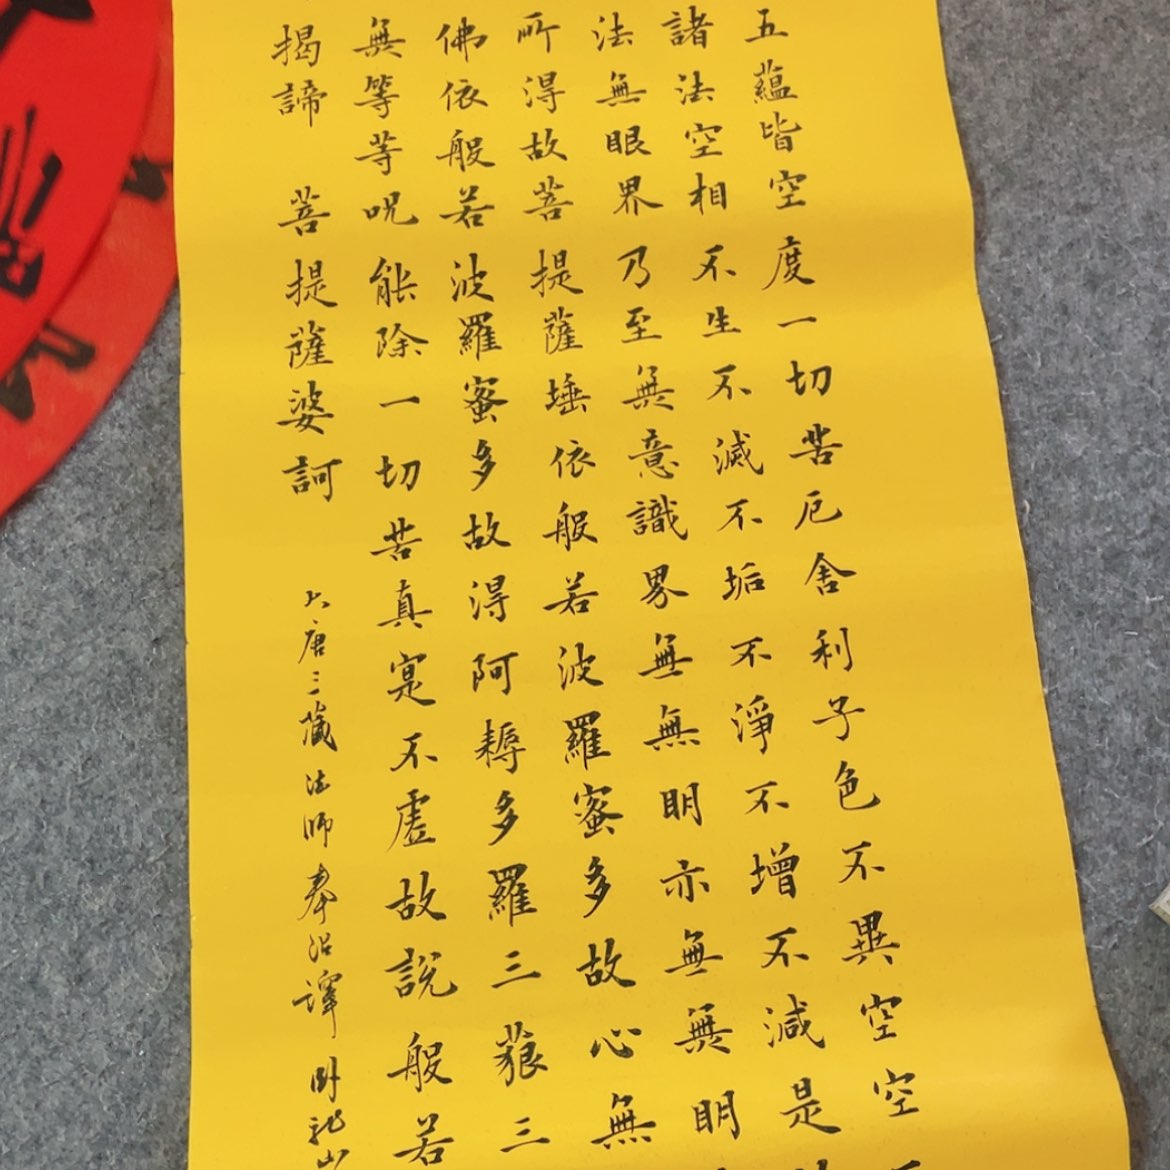 五蘊皆空度一切苦厄舍利子色不異空空
諸法空相不生不滅不垢不淨不增不減是
法無眼界乃至無意識界無無明亦無無明
所得故菩提薩埵依般若波羅蜜多故心無
佛依般若波羅蜜多故得阿耨多羅三藐三
無等等呪能除一切苦真寔不虛故說般若
揭諦 菩提薩婆訶
大唐三藏法師奉詔譯 卧龍山